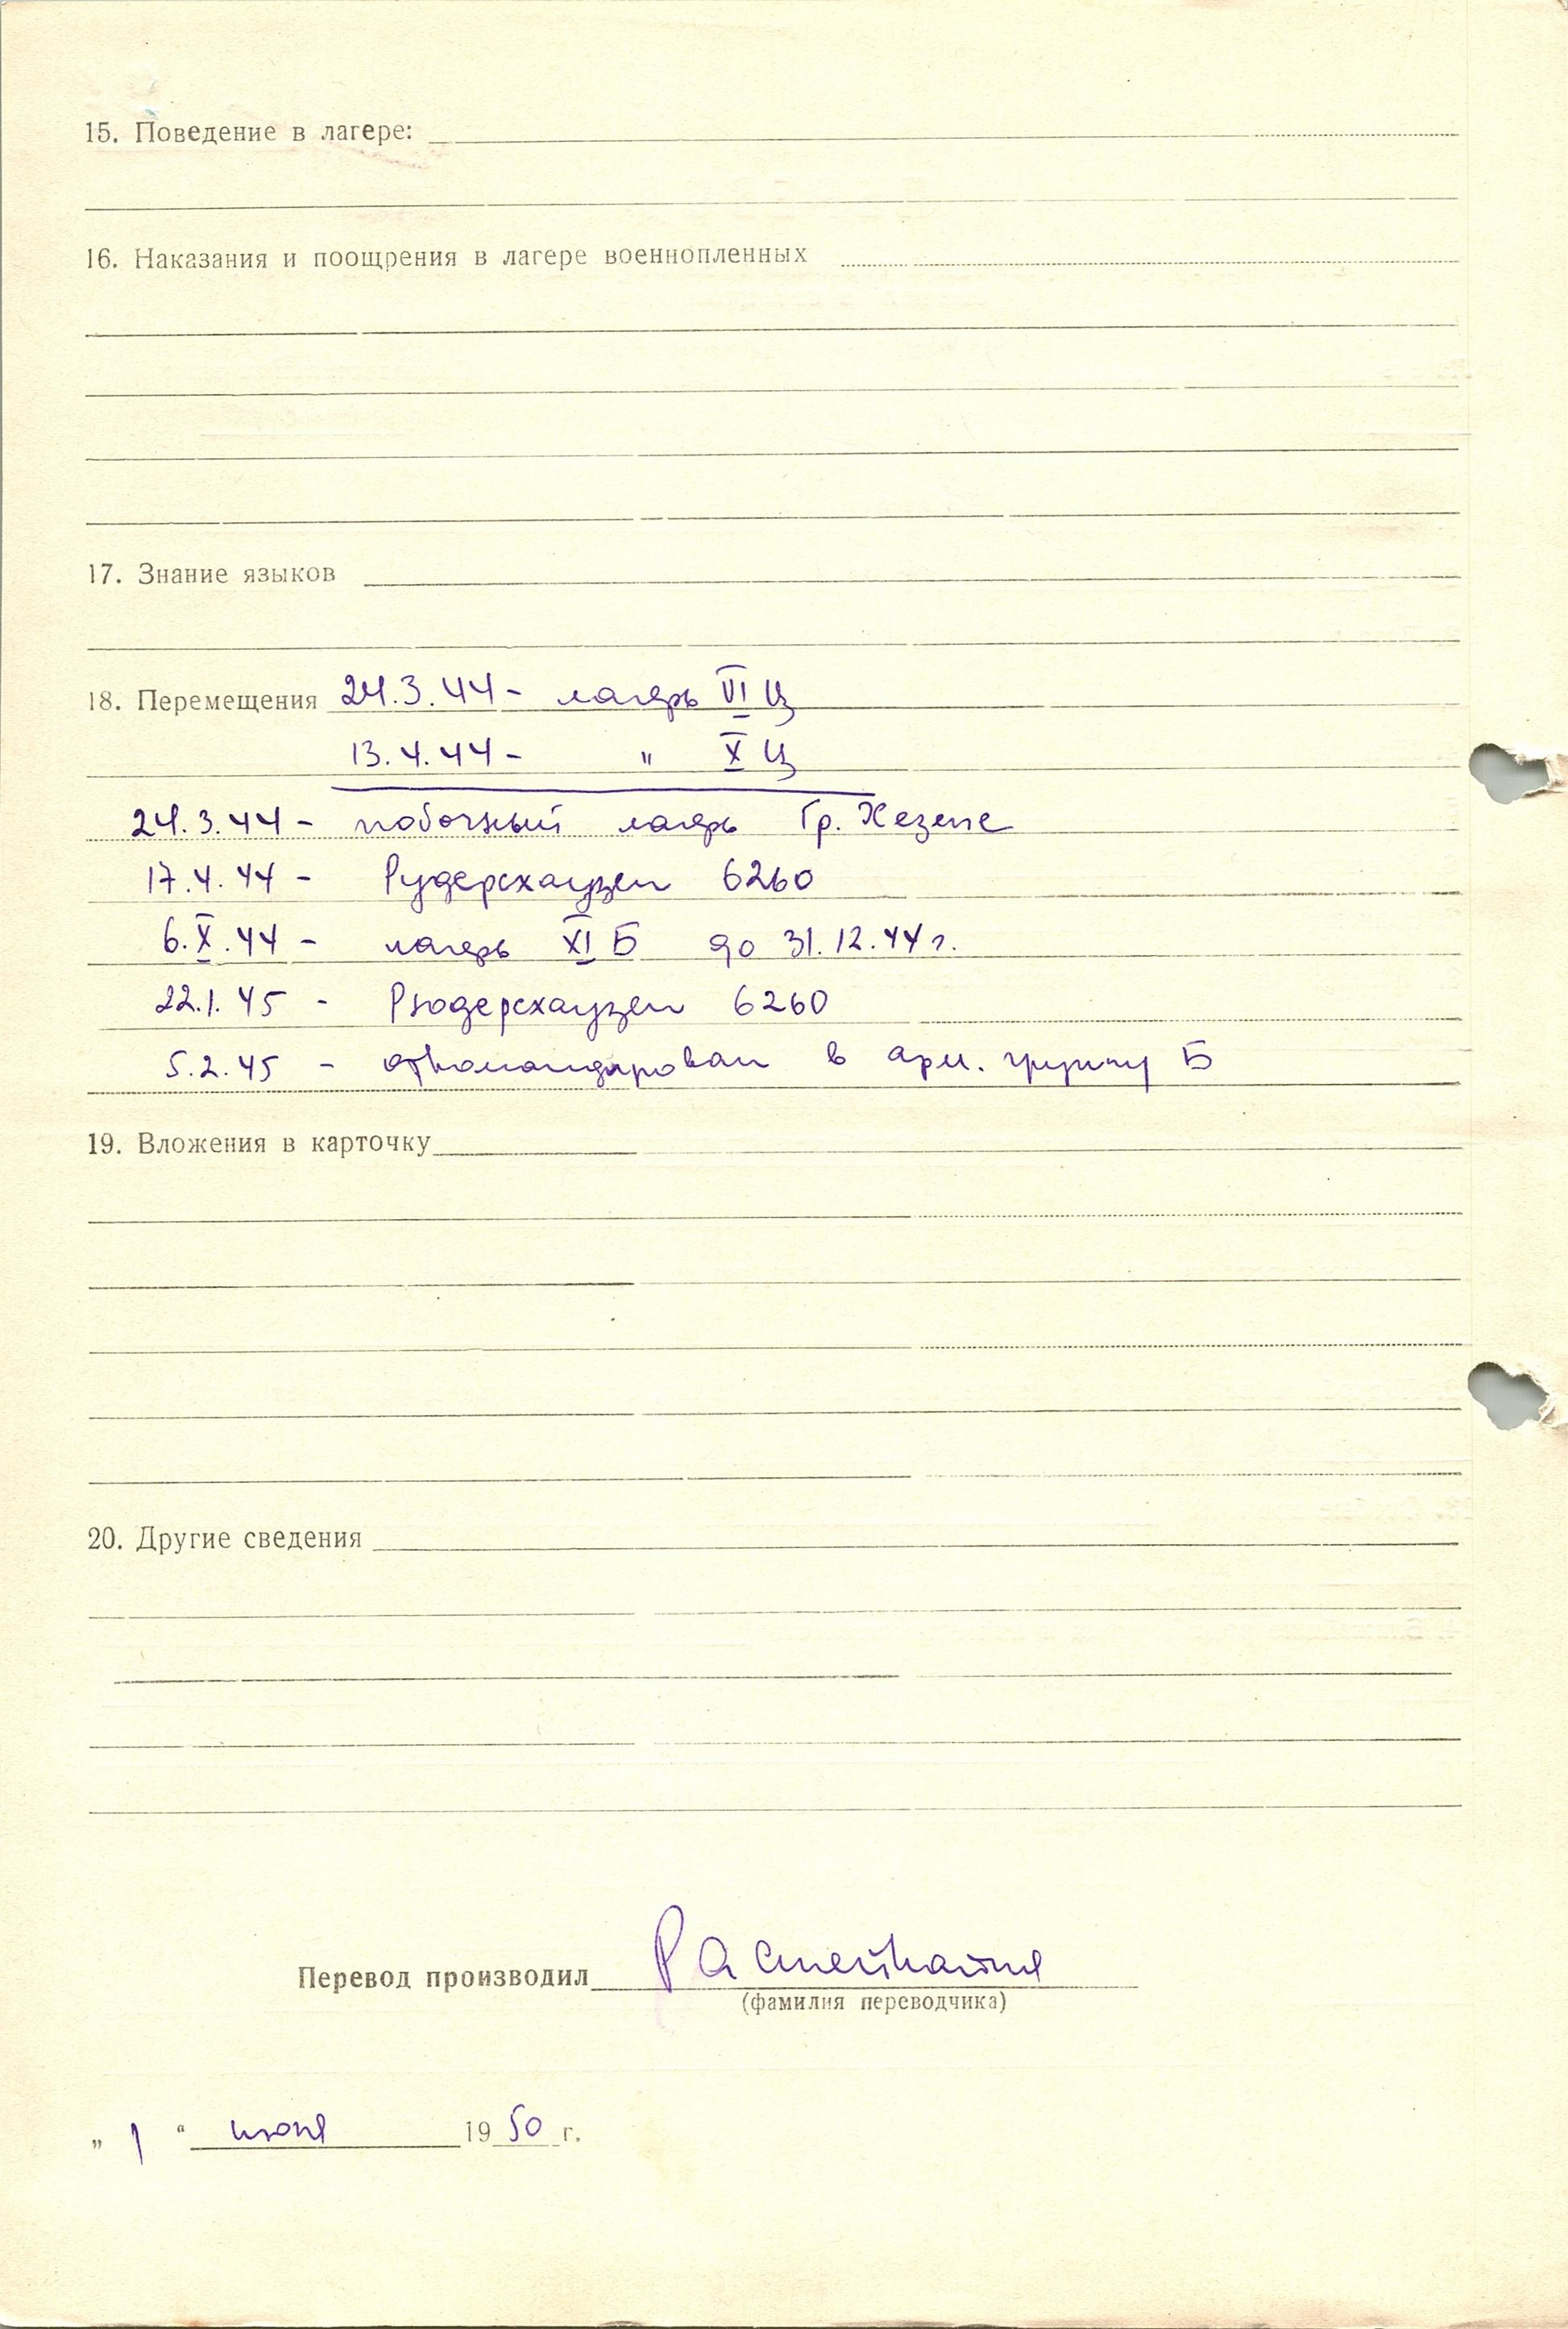 15. Поведение в лагере:
16. Наказания и поощрения в лагере военнопленных
17. Знание языков
18. Перемещения 24.3.44 - лагерь VI Ц
13.4.44 - " X Ц
24.3.44 - побочный лагерь Гр. Хезепе
17.4.44 - Рудерсхаузен 6260
6.X.44 - лагерь XI Б до 31.12.44 г.
22.1.45 - Рюдерсхаузен 6260
5.2.45 - откомандирован в арм. группу Б
19. Вложения в карточку
20. Другие сведения
Перевод производил
(фамилия переводчика)
„ 1 “ июня 1950 г.